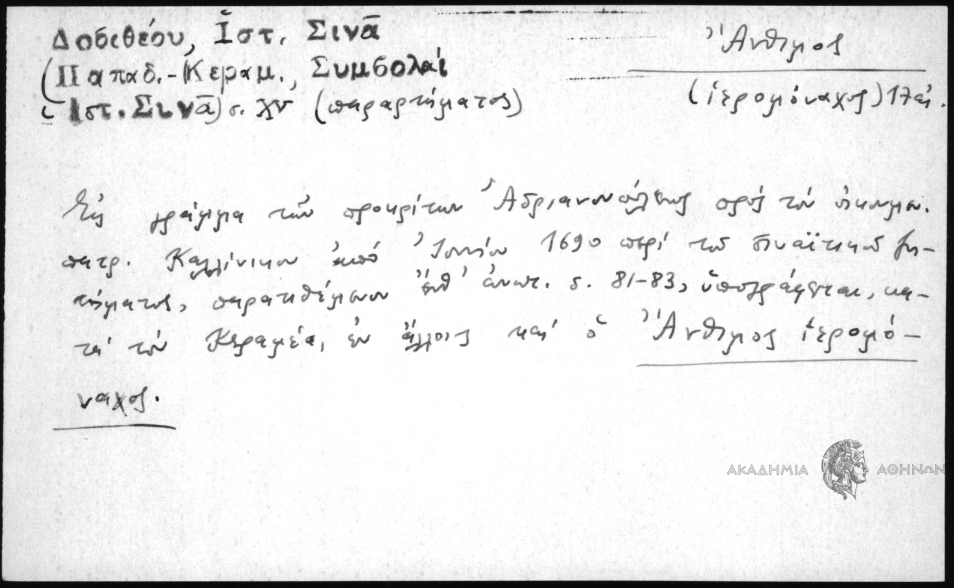 Δοσιθέου, Ἱστ. Σινᾶ
(Παπαδ.-Κεραμ., Συμβολαί
Ἱστ. Σινᾶ) σ. χν´ (παραρτήματος)
Ἄνθιμος
(ἱερομόναχος) 17 αἰ.
Εἰς γράμμα τῶν προκρίτων Ἀδριανουπόλεως πρός τόν οἰκουμεν.
πατρ. Καλλίνικον ἀπό Ἰουνίου 1690 περί τοῦ σιναϊτικοῦ ζη-
τήματος, παρατιθέμενον ἐνθ' ἀνωτ. σ. 81-83, ὑπογράφεται, κα-
τά τόν Κεραμέα, ἐν ἄλλοις καί ὁ Ἄνθιμος ἱερομό-
ναχος.
ΑΚΑΔΗΜΙΑ ΑΘΗΝΩΝ